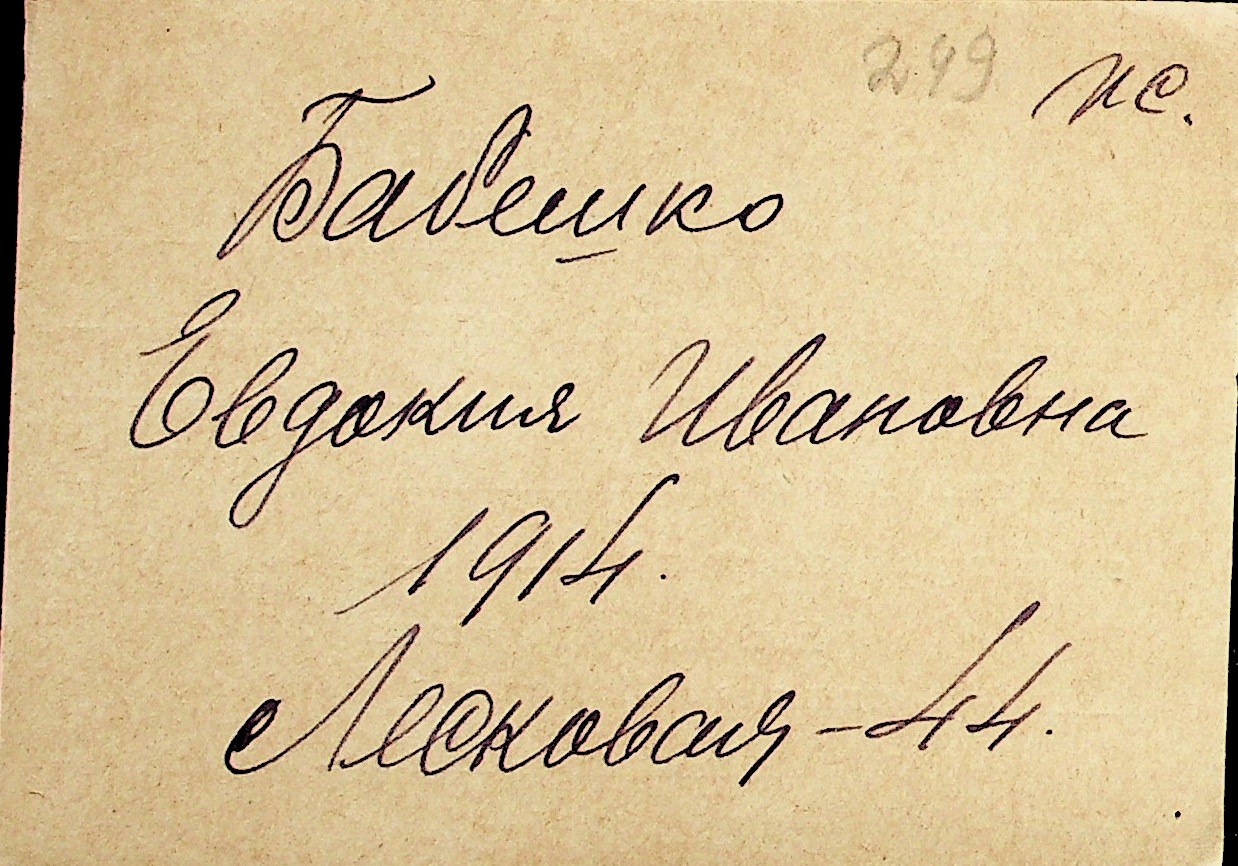 249 ис.
Бабешко
Евдокия Ивановна
1914.
Лесковая - 44.